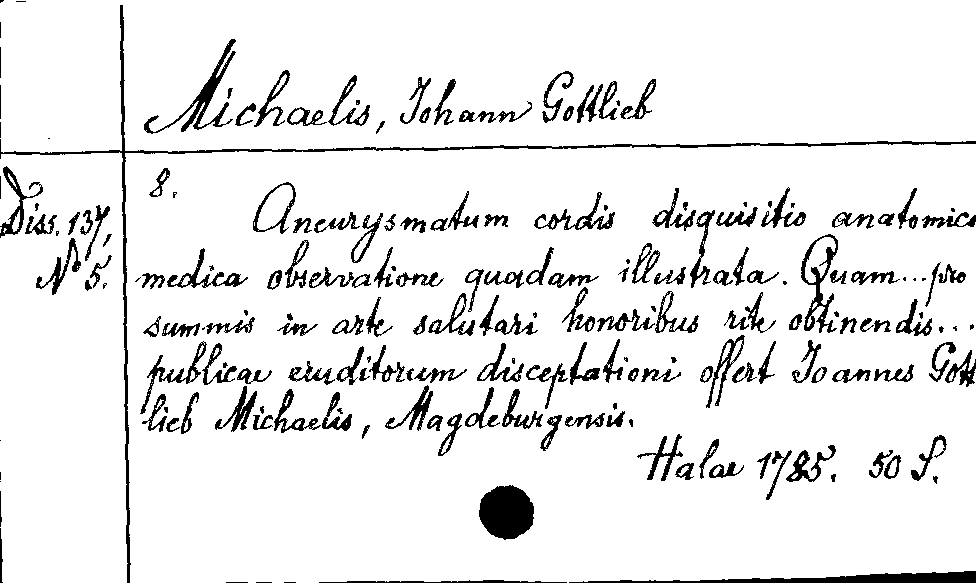 Michaelis, Johann Gottlieb
Diss. 137,
No 5.
8.
Aneurysmatum cordis disquisitio anatomico
medica observatione quadam illustrata. Quam... pro
summis in arte salutari honoribus rite obtinendis...
publicae eruditorum disceptationi offert Ioannes Gott
lieb Michaelis, Magdeburgensis.
Halae 1785. 50 S.